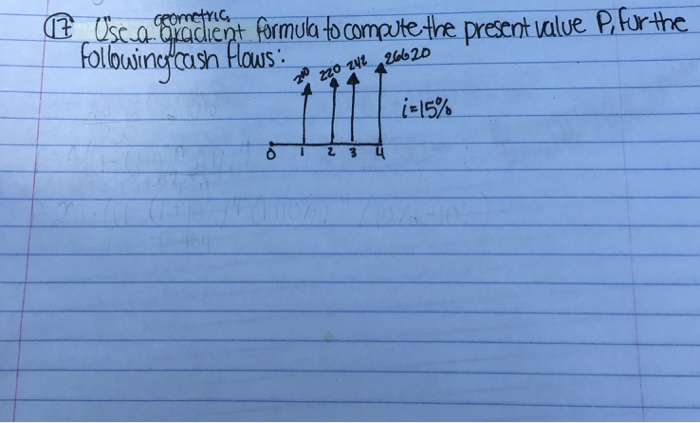 geometric
17 Use a gradient formula to compute the present value P, for the
following cash flows:
200 220 242 26620
i=15%
0 1 2 3 4